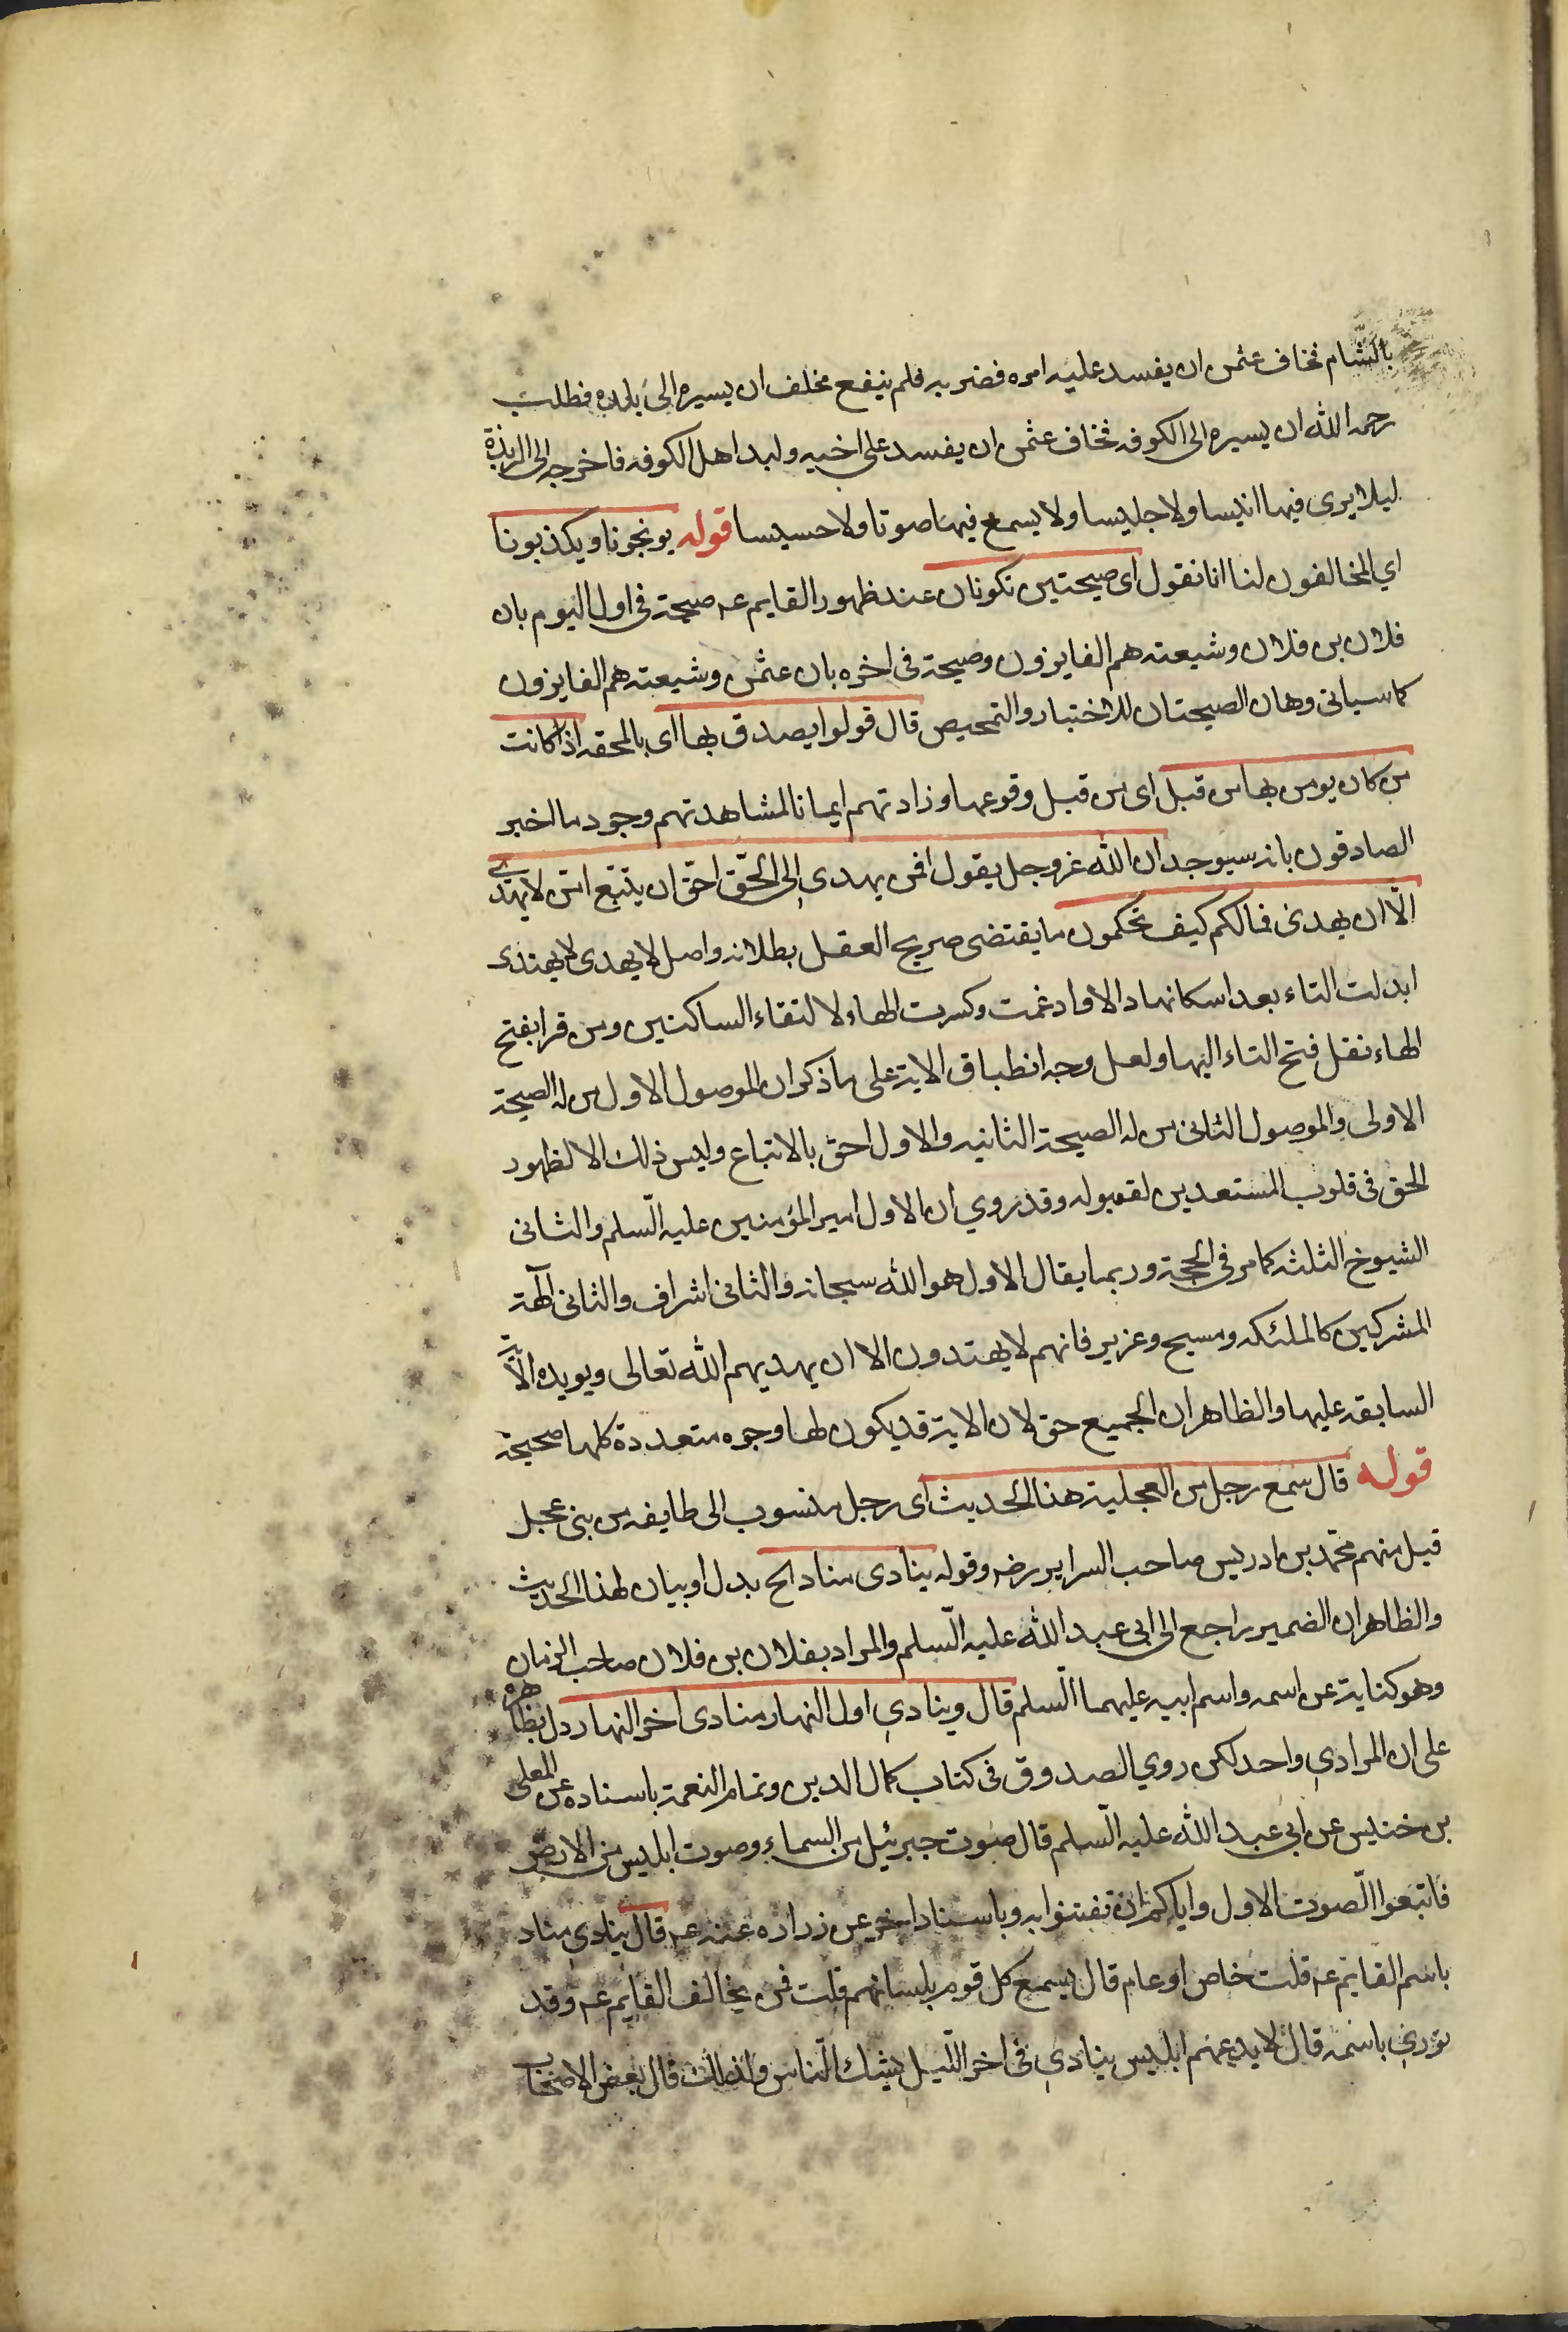 بالشام فخاف عثمن ان يفسد عليه امره فضربه فلم ينفع فحلف ان يسيره الى بلده فطلب
رحمه الله ان يسيره الى الكوفه فخاف عثمن ان يفسد على اخيه وليد اهل الكوفه فاخرجه الى الربذة
ليلا يرى فيها انيسا ولا جليسا ولا يسمع فيها صوتا ولا حسيسا قوله يوبخونا ويكذبونا
اي المخالفون لنا انا نقول اى صيحتين تكونان عند ظهور القايم عه صيحة في اول اليوم بان
فلان بن فلان وشيعته هم الفايزون وصيحة فى اخره بان عثمن وشيعته هم الفايزون
كما سياتى وهان الصيحتان للاختبار والتمحيص قال قولوا يصدق بها اى بالمحقه اذا كانت
من كان يومن بها من قبل اى من قبل وقوعها وزادتهم ايمانا لمشاهدتهم وجود ما اخبر
الصادقون بانه سيوجد ان الله عز وجل يقول افمن يهدي الى الحق احق ان يتبع امن لا يهدي
الا ان يهدى فمالكم كيف تحكمون ما يقتضى صريح العقل بطلانه واصل لا يهدى لا يهتدى
ابدلت التاء بعد اسكانها دالا وادغمت وكسرت الهاء لالتقاء الساكنين ومن قرا بفتح
الهاء نقل فتح التاء اليها ولعل وجه انطباق الاية على ما ذكر ان الموصول الاول من له الصيحة
الاولى والموصول الثانى من له الصيحة الثانيه والاول احق بالاتباع وليس ذلك الا لظهور
الحق فى قلوب المستعدين لقبوله وقد روي ان الاول امير المؤمنين عليه السلم والثانى
الشيوخ الثلثه كما مر فى الحجة وربما يقال الاول هو الله سبحانه والثانى اشراف والثانى الهة
المشركين كالملئكه ومسيح وعزير فانهم لا يهتدون الا ان يهديهم الله تعالى ويويده الاية
السابقه عليها والظاهر ان الجميع حق لان الاية قد يكون لها وجوه متعددة كلها صحيحة
قوله قال سمع رجل من العجلية هذا الحديث اى رجل منسوب الى طايفه من بنى عجل
قيل منهم محمد بن ادريس صاحب السراير رضه وقوله ينادى مناد الح بدل او بيان لهذا الحديث
والظاهر ان الضمير راجع الى ابى عبد الله عليه السلم والمراد بفلان بن فلان صاحب الزمان
وهو كناية عن اسمه واسم ابيه عليهما السلم قال وينادي اول النهار منادى اخر النهار دل بظاهره
على ان المرادي واحد لكن روي الصدوق فى كتاب كمال الدين وتمام النعمة باسناده عن المعلى
بن خنيس عن ابى عبد الله عليه السلم قال صوت جبرئيل من السماء وصوت ابليس من الارض
فاتبعوا الصوت الاول واياكم ان تفتنوا به وباسناد اخر عن زراره عنه عه قال ينادي مناد
باسم القايم عه قلت خاص او عام قال يسمع كل قوم بلسانهم قلت فمن يخالف القايم عه وقد
نودي باسمه قال لا يدعهم ابليس ينادي فى اخر الليل يشك الناس ولذلك قال بعض الاصحاب